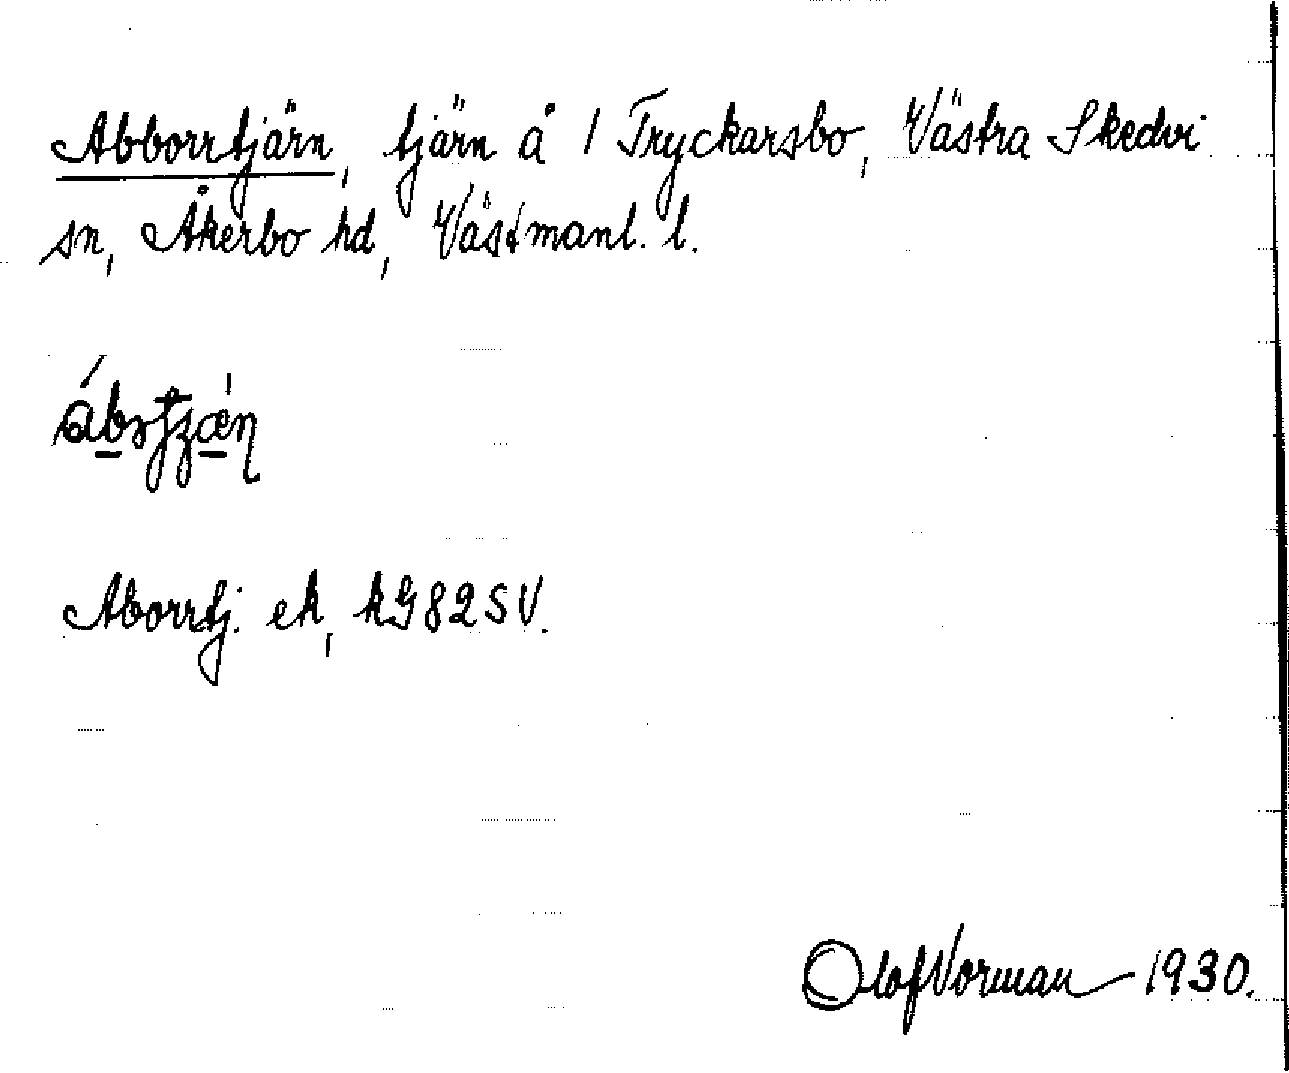 Abborrtjärn, tjärn å 1 Tryckarsbo, Västra Skedvi
sn, Åkerbo hd, Västmanl. l.
Aborrtj. ek, kG82SV.
Olof Norman 1930.